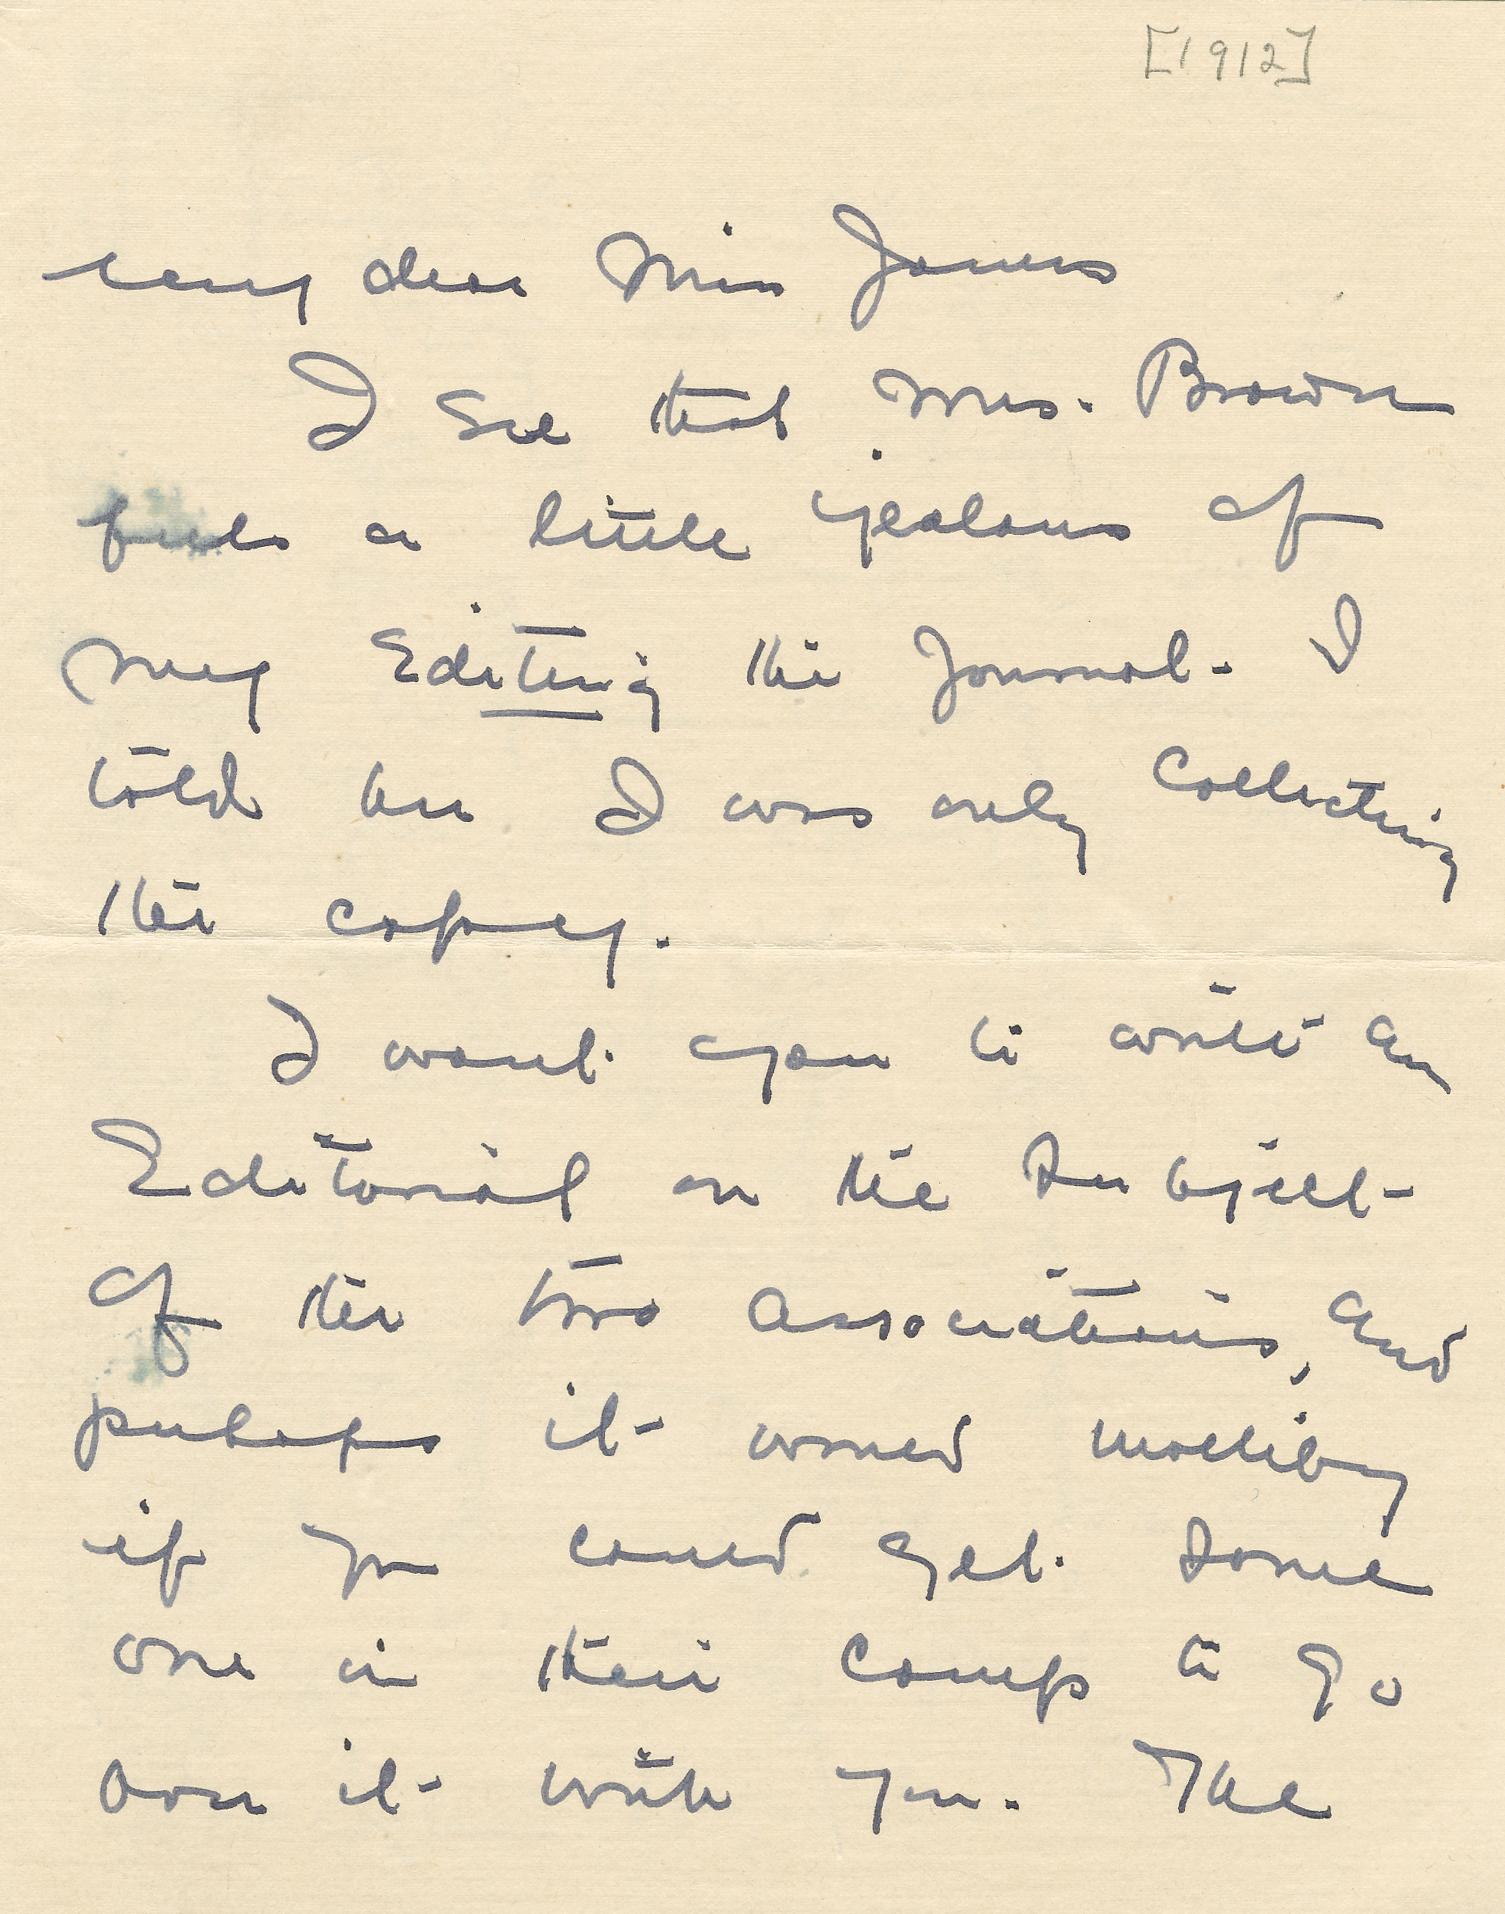 [1912]
my dear Miss Jones
I see that Mrs. Brown
feels a little jealous of
my Editing the Journal - I
told her I was only collecting
the copy.
I want you to write an
Editorial on the subject
of the two associations, and
perhaps it would mollify
if you could get some
one in their camp to go
over it with you. The